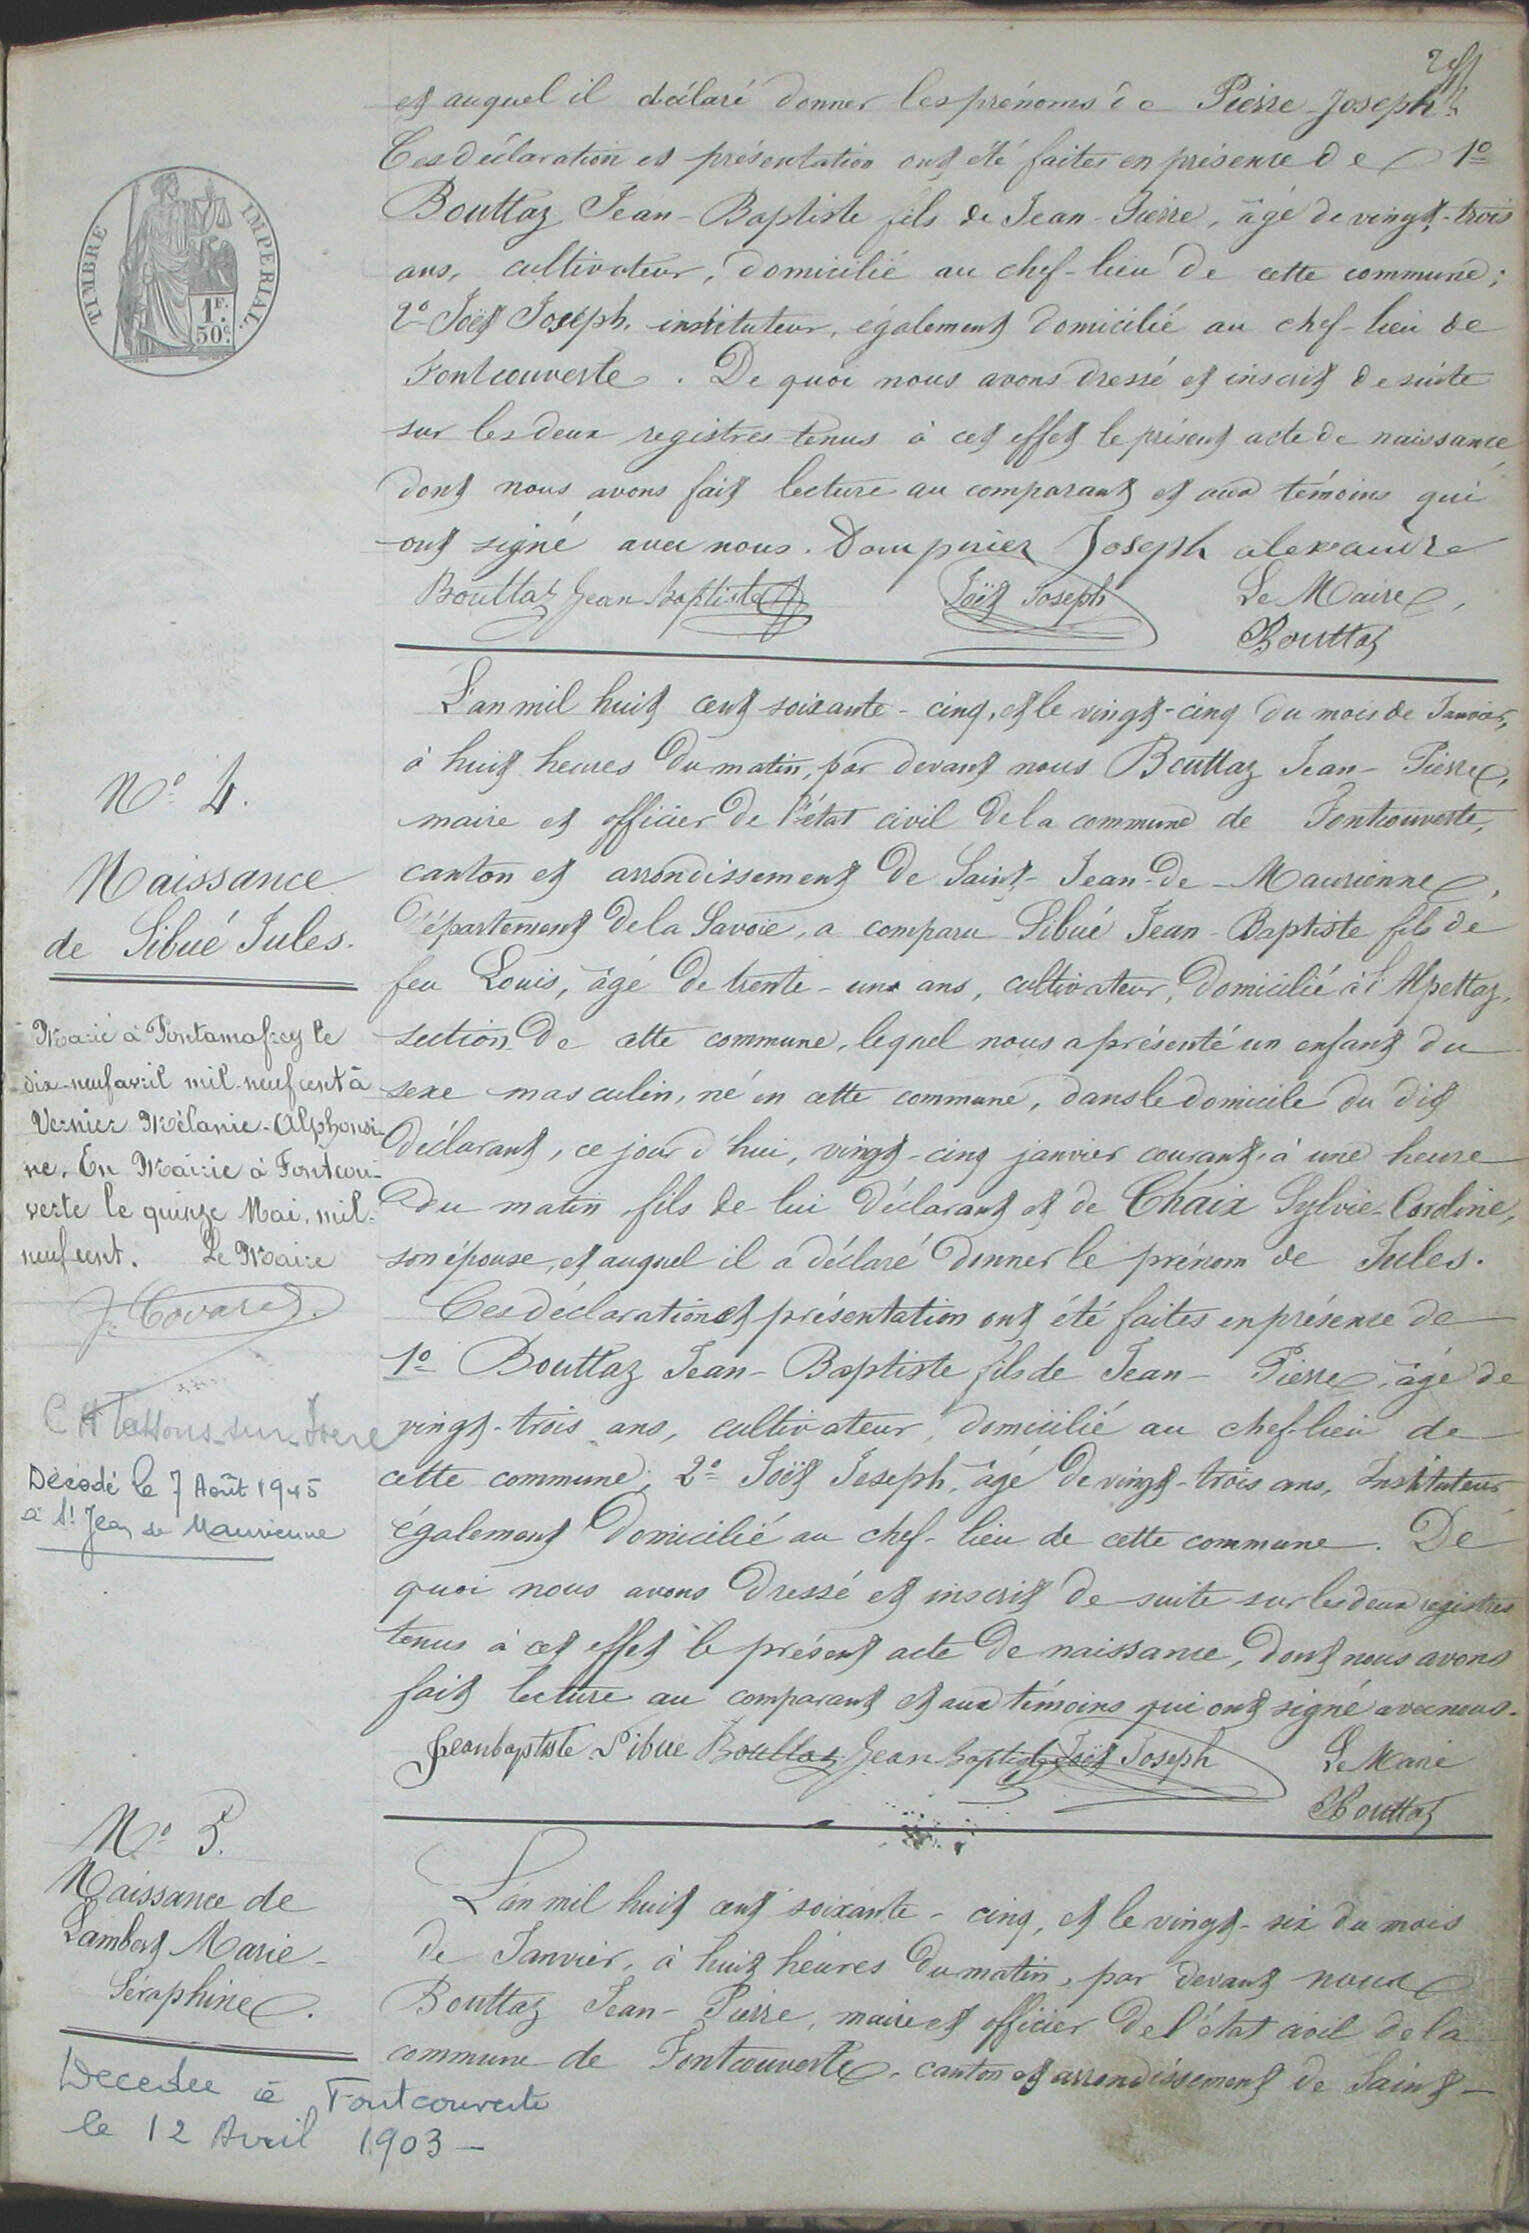 et auquel il déclaré donner les prénoms de Pierre Joseph.
Ces déclaration et présentation ont été faites en présence de 1º
Bouttaz Jean-Baptiste fils de Jean-Pierre, âgé de vingt-trois
ans, cultivateur, domicilié au chef-lieu de cette commune;
2º Joët Joseph, instituteur, également domicilié au chef-lieu de
Fontcouverte. De quoi nous avons dressé et inscrit de suite
sur les deux registres tenus à cet effet le présent acte de naissance
dont nous avons fait lecture au comparant et aux témoins qui
ont signé avec nous. Dompnier Joseph alexandre
Bouttaz Jean Baptiste Joët Joseph Le Maire,
Bouttaz
TIMBRE IMPERIAL.
1F.
50c.
Nº 4.
Naissance
de Sibué Jules.
Marié à Pontamafrey le
dix-neuf avril mil-neuf cent à
Vernier Mélanie-Alphonsi-
ne. En Mairie à Fontcou-
verte le quinze Mai, mil-
neuf cent. Le Maire
J. Covarel.
sur-Isère
Décédé le 7 Août 1945
à St Jean de Maurienne
L'an mil huit cent soixante-cinq, et le vingt-cinq du mois de Janvier,
à huit heures du matin, par devant nous Bouttaz Jean-Pierre,
maire et officier de l'état civil de la commune de Fontcouverte,
canton et arrondissement de Saint-Jean-de-Maurienne,
Département de la Savoie, a comparu Sibué Jean-Baptiste fils de
feu Louis, âgé de trente-un ans, cultivateur, domicilié à l'Alpettaz,
section de cette commune, lequel nous a présenté un enfant du
sexe masculin, né en cette commune, dans le domicile du dit
déclarant, ce jour d'hui, vingt-cinq janvier courant, à une heure
du matin, fils de lui déclarant et de Chaix Sylvie-Caroline,
son épouse, et auquel il a déclaré donner le prénom de Jules.
Ces déclaration et présentation ont été faites en présence de
1º Bouttaz Jean-Baptiste fils de Jean-Pierre, âgé de
vingt-trois ans, cultivateur, domicilié au chef-lieu de
cette commune; 2º Joët Joseph, âgé de vingt-trois ans, Instituteur
également domicilié au chef-lieu de cette commune. De
quoi nous avons dressé et inscrit de suite sur les deux registres
tenus à cet effet le présent acte de naissance, dont nous avons
fait lecture au comparant et aux témoins qui ont signé avec nous.
Jean baptiste Sibue Bouttaz Jean Baptiste Joët Joseph Le Maire
Bouttaz
Nº 5.
Naissance de
Lambert Marie-
Séraphine.
Decedee à Fontcouverte
le 12 Avril 1903-
L'an mil huit cent soixante-cinq, et le vingt-six du mois
de Janvier, à huit heures du matin, par devant nous
Bouttaz Jean-Pierre, maire et officier de l'état civil de la
commune de Fontcouverte, canton et arrondissement de Saint-